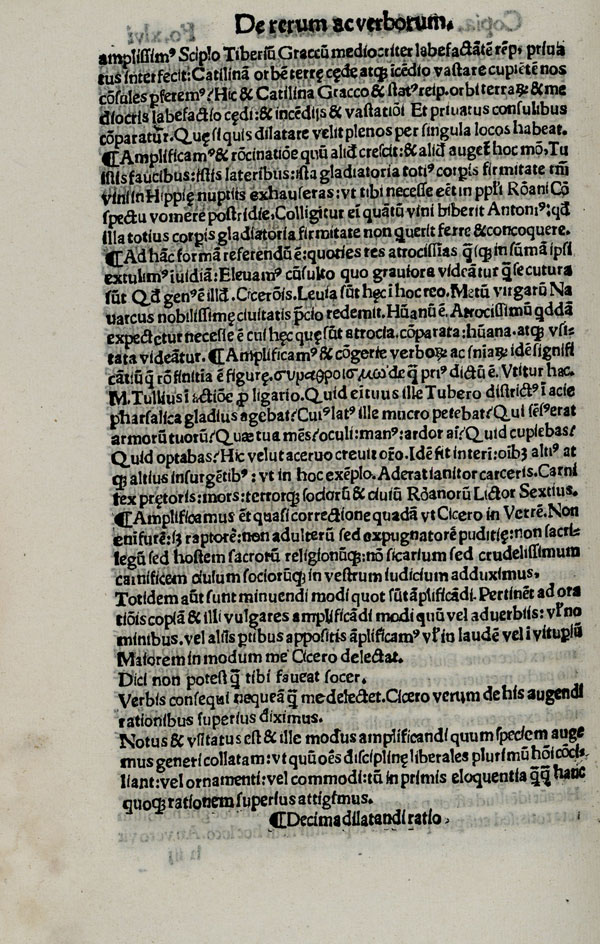 De rerum ac verborum.
ampliſſimꝰ Scipio Tiberiū Graccū mediocriter labefactātē rēp. priua
tus interfecit: Catilinā orbē terrę cęde atqꝫ īcēdio vaſtare cupiētē nos
cōſules pferemꝰ? Hic & Catilina Gracco & ſtatꝰ reip. orbi terraꝝ & me
diocris labefactio cędi: & incēdijs & vaſtatiōi Et priuatus conſulibus
cōparatur. Quę ſi quis dilatare velit plenos per ſingula locos habeat.
¶Amplificamꝰ & rōcinatiōe quū aliđ creſcit: & aliđ augeť hoc mō. Tu
iſtis faucibus: iſtis lateribus: iſta gladiatoria totiꝰ corpis firmitate tm̄
vini in Hippię nuptiis exhauſeras: vt tibi neceſſe eēt in ppłi Rōani Cō
ſpectu vomere poſtridie. Colligitur ei quātū vini biberit Antoniꝰ: qđ
illa totius corpis gladiatoria firmitate non querit ferre & concoquere.
¶Ad hāc formā referendū ē: quoties res atrociſſias q̄ iꝗ in ſūmā ipſi
extulimꝰ īuidiā: Eleuamꝰ cūſulto quo grauiora videātur q̄ ſecutura
ſūt Qđ genꝰ ē illđ. Ciceróis. Leuia ſūt hęc ī hoc reo. Metū virgarū Na
uarcus nobiliſſimę ciuitatis p̄cio redemit. Hūanū ē. Atrociſſimū qđdā
expectetur neceſſe ē cui hęc quę ſūt atrocia. cōparata: hūana. atqꝫ vſi-
tata videātur. ¶Amplificamꝰ & cōgerie verboꝝ ac ſniaꝝ idē ſignifi
cātiū q̄ rōfinitia ē figurę. συραθροισμω de q̄ priꝰ dictū ē. Vtitur hac.
M. Tulliusī actiōe ꝓ ligario. Quid ei tuus ille Tubero diſtrictꝰ ī acie
pharſalica gladius agebat? Cuiꝰ latꝰ ille mucro petebat? Qui ſēſꝰ erat
armorū tuorū? Quæ tua mēs? oculi: manꝰ: ardor ai? Quid cupiebas?
Quid optabas? Hic velut aceruo creuit oŕo. Idē fit interi: oībꝫ altiꝰ at
qꝫ altius inſurgētibꝰ: vt in hoc exēplo. Aderat ianitor carceris. Carni
fex prętoris: mors: terrorqꝫ ſociorū & ciuiū Rōanorū Lictor Sextius.
¶Amplificamus ēt quaſi correctione quadā vt Cicero in Verrē. Non
eni furē: ſꝫ raptorē: non adulterū ſed expugnatorē pudiţię: non ſacri-
legū ſed hoſtem ſacrorū religionūqꝫ: nō ſicarium ſed crudeliſſimum
carnificem ciuium ſociorūqꝫ in veſtrum iudicium adduximus.
Totidem aūt ſunt minuendi modi quot ſūt āplificādi. Pertinēt ad ora
tiōis copiā & illi vulgares amplificādi modi quū vel aduerbiis: vł no
minibus. vel aliis ptibus appoſitis āplificamꝰ vł in laudē vel ī vitupiū
Maiorem in modum me Cicero delectat.
Dici non poteſt q̄ tibi faueat ſocer.
Verbis conſequi nequeā q̄ me delectet. Cicero verum de his augendi
rationibus ſuperius diximus.
Notus & vſitatus eſt & ille modus amplificandi quum ſpeciem auge
mus generi collatam: vt quū oēs diſciplinę liberales plurimū hōi cōci-
liant: vel ornamenti: vel commodi: tū in primis eloquentia q̄q̄ hanc
quoqꝫ rationem ſuperius attigimus.
¶Decima dilatandi ratio.